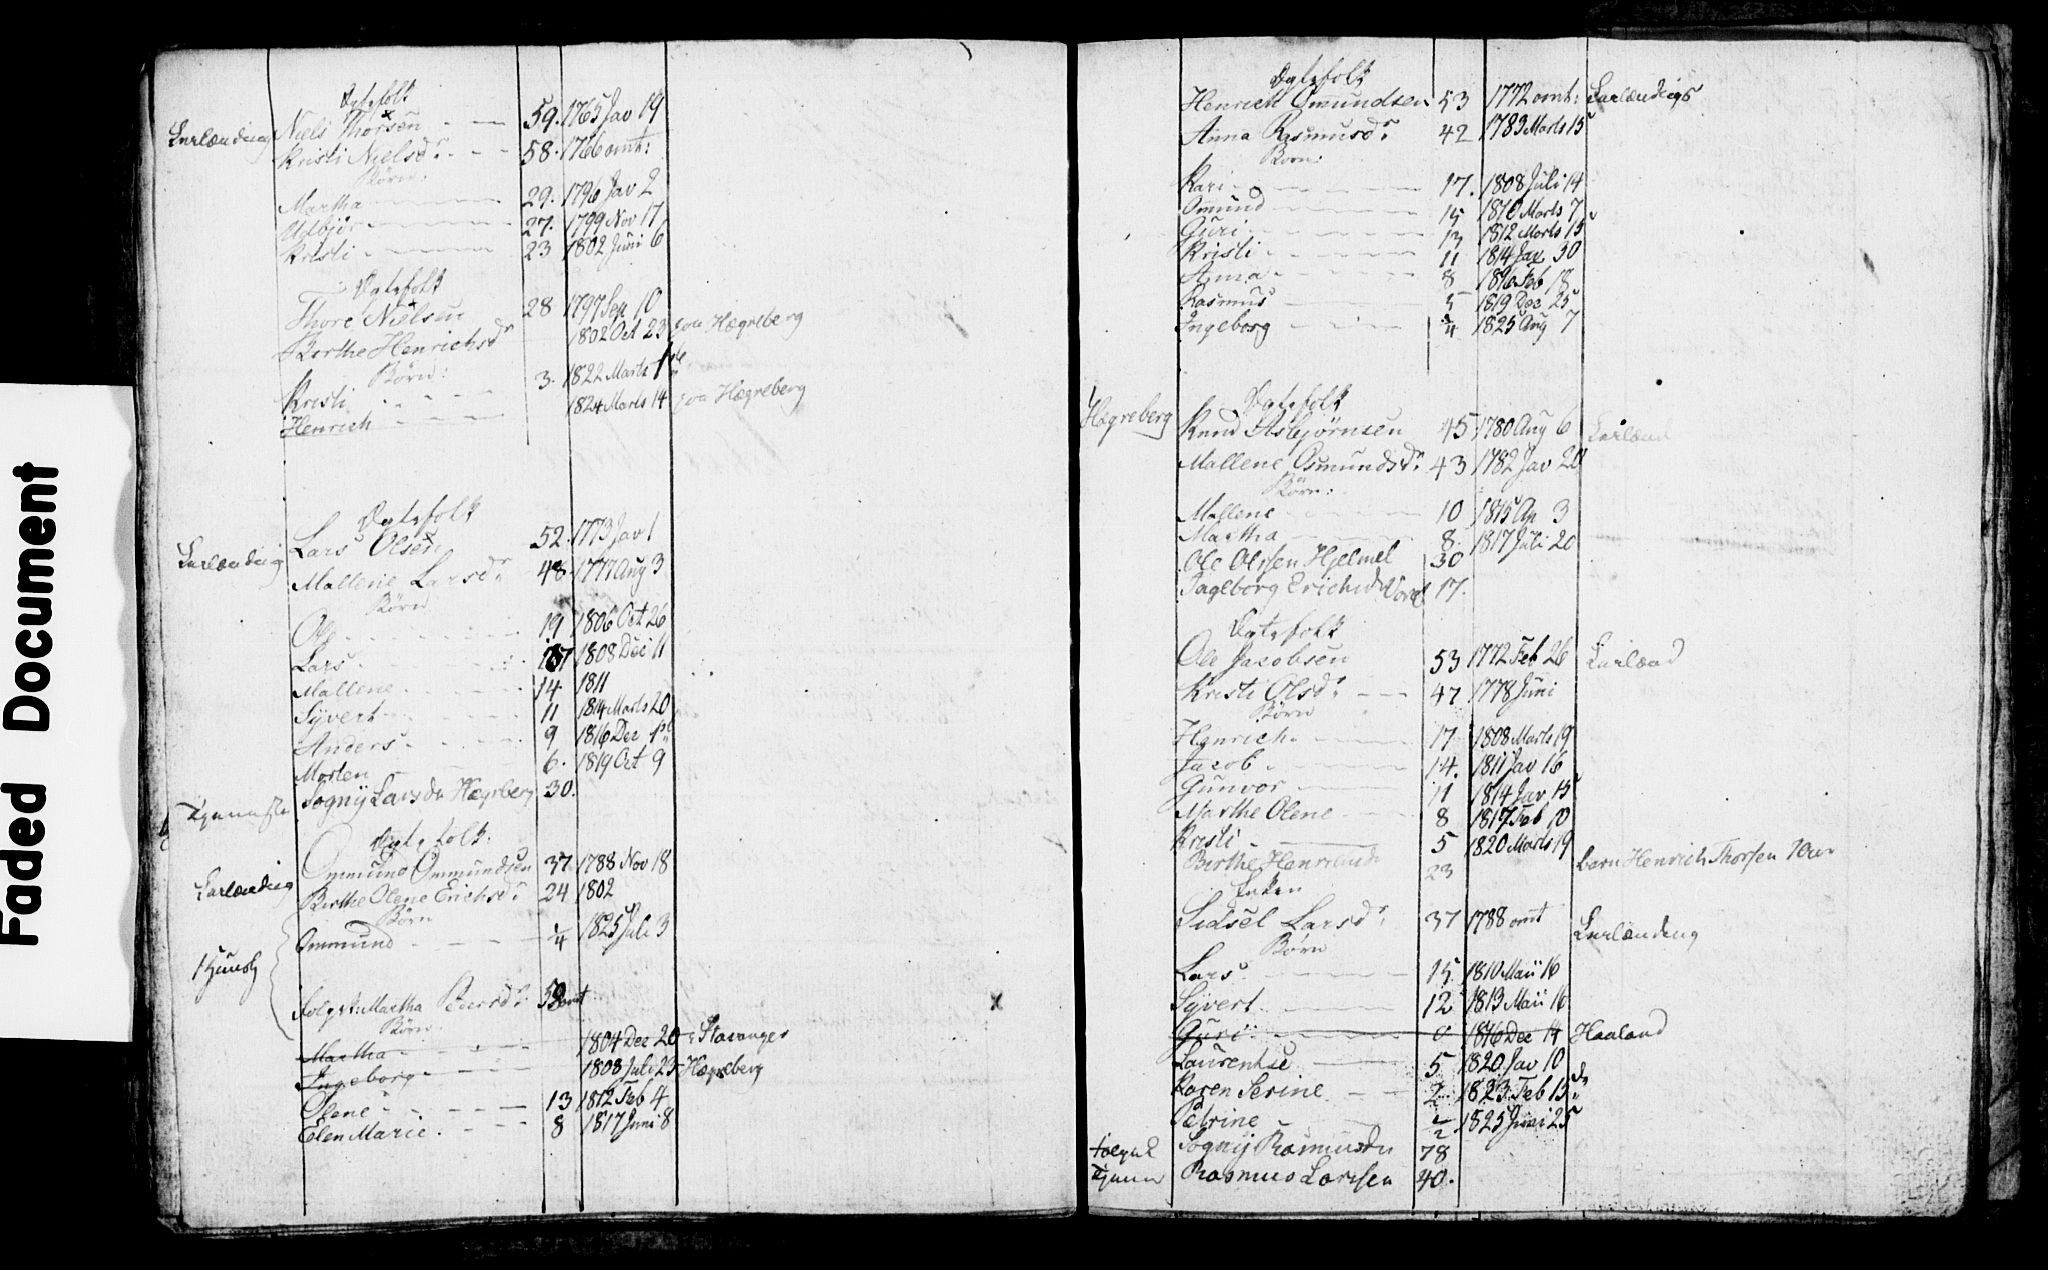 Faded Document
Egtefolk
Niels Thorsen 59. 1765 Jav 19
Kristi Nielsdr 58. 1766 omt:
Børn:
Martha 29. 1796 Jav 2
27. 1799 Nov 17
Kristi 23 1802 Juni 6
Egtefolk
Thore Nielsen 28 1797 Sep 10
Berthe Henrichsdr 1802 Oct 23 paa Hægreberg
Børn:
Kristi 3. 1822 Marts 1
Henrich 1824 Marts 14 paa Hægreberg
Egtefolk
Lars Olsen 52. 1773 Jav 1
Mallene Larsdr 48. 1777 Aug 3
Børn
Ole 19 1806 Oct 26
Lars 17 1808 Dec 11
Mallene 14 1811
Syvert 11 1814 Marts 20
Anders 9 1816 Dec 1
Morten 6. 1819 Oct 9
Sogny Larsdr Hægrberg 30.
Egtefolk.
Ommund Ommundsen 37 1788 Nov 18
Berthe Olene Erichsdr 24 1802
Børn
Ommund 1/4 1825 Juli 3
Martha Peersdr omt
Børn
Martha 1804 Dec 20 Stavanger
Ingeborg 1808 Juli 25 Hægreberg
Olene 13 1812 Feb 4
Elen Marie. 8 1817 Juni 8
Egtefolk
Henrich Ommundsen 53 1772 omt:
Anna Rasmusdr 42 1783 Marts 15
Børn:
Kari 17. 1808 Juli 14
Ommund 15 1810 Marts 7
Guri 13 1812 Marts 15
Kristi 11 1814 Jav 30
Anna 8 1816 Feb 18
Rasmus 5 1819 Dec 25
Ingeborg 1/4 1825 Aug 7
Egtefolk
Hægreberg Knud Asbjørnsen 45 1780 Aug 6
Mallene Osmundsdr 43 1782 Jav 20
Børn:
Mallene 10 1815 Ap 3
Martha 8. 1817 Juli 20
Ole Olssen Hjelmel 30
Ingeborg 17.
Egtefolk
Ole Jacobsen 53 1772 Feb 26
Kristi Olsdr 47 1778 Juni
Børn
Henrich 17 1808 Marts 19
Jacob 14. 1811 Jav 16
Gunvor 11 1814 Jav 15
Marthe Olene 8 1817 Feb 10
Kristi 5 1820 Marts 19
Berthe 23 barn Henrich Thorsen
Enken
Sidsel Larsdr 37 1788 omt
Børn
Lars 15 1810 Maii 16
Syvert 12 1813 Maii 16
Guri 1816 Dec 14 Haaland
Laurentse 5 1820 Jav 10
Karen Serine 2 1823 Feb 15
Petrine 1/2 1825 Juni 25
Sogny Rasmusdr 78
Rasmus Larssen 40.